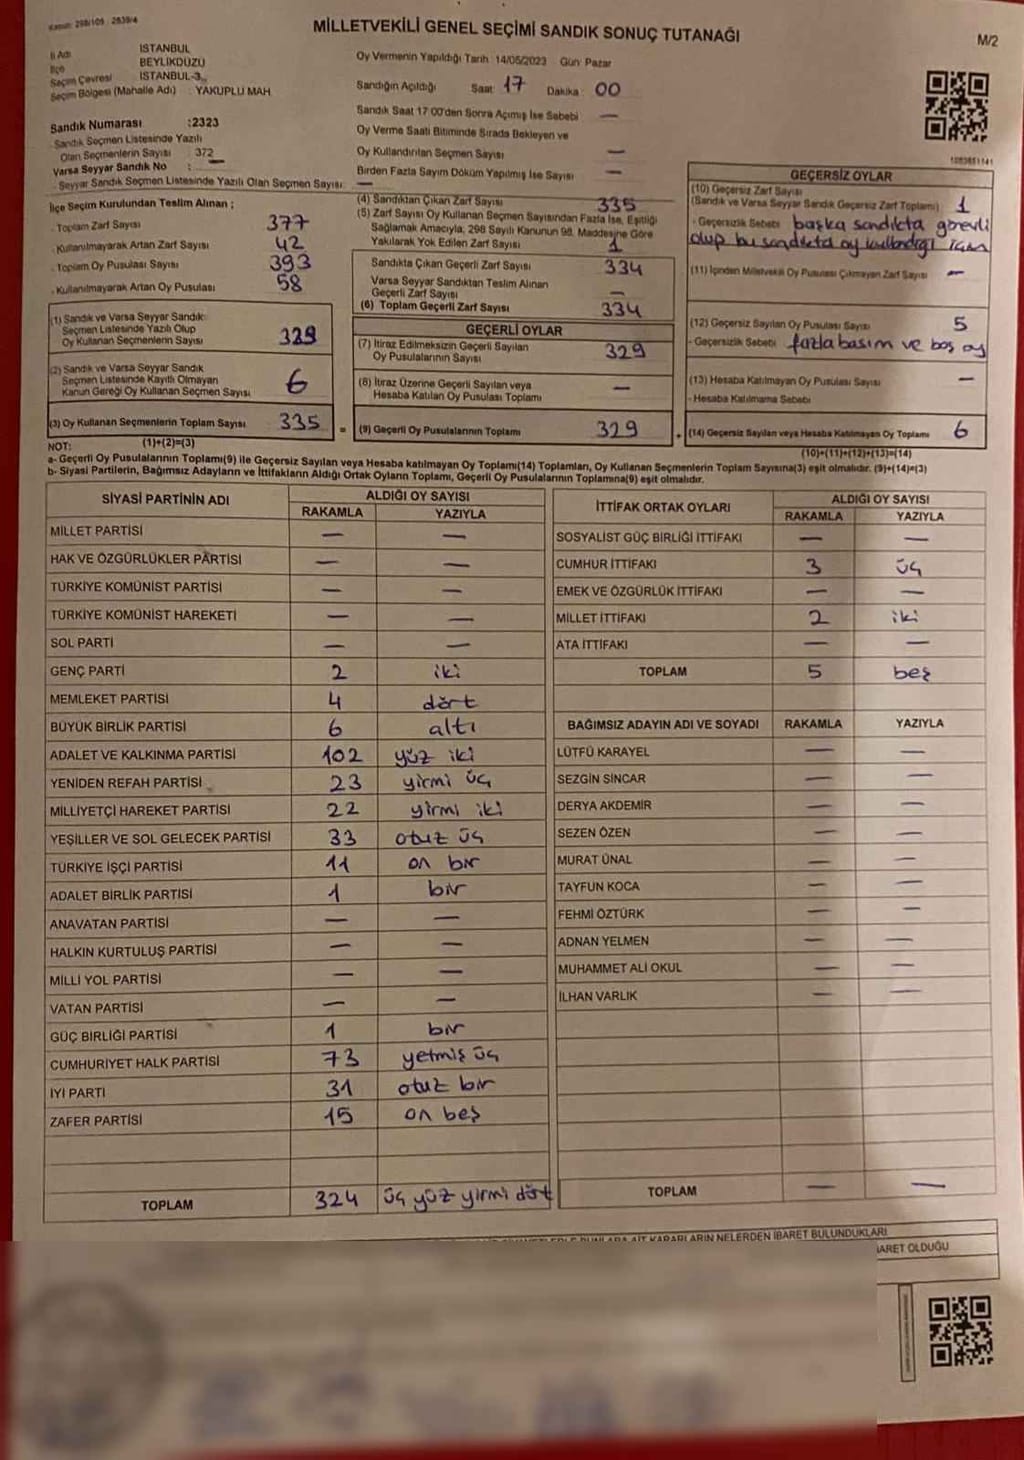 Kanun: 298/105 - 2839/4
MİLLETVEKİLİ GENEL SEÇİMİ SANDIK SONUÇ TUTANAĞI
M/2
İl Adı İSTANBUL
İlçe BEYLİKDÜZÜ
Seçim Çevresi İSTANBUL-3
Seçim Bölgesi (Mahalle Adı) : YAKUPLU MAH.
Sandık Numarası :2323
Sandık Seçmen Listesinde Yazılı
Olan Seçmenlerin Sayısı : 372
Varsa Seyyar Sandık No : —
Seyyar Sandık Seçmen Listesinde Yazılı Olan Seçmen Sayısı: —
Oy Vermenin Yapıldığı Tarih :14/05/2023 Gün: Pazar
Sandığın Açıldığı Saat: 17 Dakika: 00
Sandık Saat 17:00'den Sonra Açımış İse Sebebi —
Oy Verme Saati Bitiminde Sırada Bekleyen ve
Oy Kullandırılan Seçmen Sayısı —
Birden Fazla Sayım Döküm Yapılmış İse Sayısı —
1083651141
İlçe Seçim Kurulundan Teslim Alınan ;
. Toplam Zarf Sayısı 377
. Kullanılmayarak Artan Zarf Sayısı 42
. Toplam Oy Pusulası Sayısı 393
. Kullanılmayarak Artan Oy Pusulası 58
(1) Sandık ve Varsa Seyyar Sandık
Seçmen Listesinde Yazılı Olup
Oy Kullanan Seçmenlerin Sayısı 329
(2) Sandık ve Varsa Seyyar Sandık
Seçmen Listesinde Kayıtlı Olmayan
Kanun Gereği Oy Kullanan Seçmen Sayısı 6
(3) Oy Kullanan Seçmenlerin Toplam Sayısı 335
(1)+(2)=(3)
(4) Sandıktan Çıkan Zarf Sayısı 335
(5) Zarf Sayısı Oy Kullanan Seçmen Sayısından Fazla İse, Eşitliği
Sağlamak Amacıyla, 298 Sayılı Kanunun 98. Maddesine Göre
Yakılarak Yok Edilen Zarf Sayısı 1
Sandıkta Çıkan Geçerli Zarf Sayısı 334
Varsa Seyyar Sandıktan Teslim Alınan
Geçerli Zarf Sayısı —
(6) Toplam Geçerli Zarf Sayısı 334
GEÇERLİ OYLAR
(7) İtiraz Edilmeksizin Geçerli Sayılan
Oy Pusulalarının Sayısı 329
(8) İtiraz Üzerine Geçerli Sayılan veya
Hesaba Katılan Oy Pusulası Toplamı —
= (9) Geçerli Oy Pusulalarının Toplamı 329
GEÇERSİZ OYLAR
(10) Geçersiz Zarf Sayısı
(Sandık ve Varsa Seyyar Sandık Geçersiz Zarf Toplamı) 1
- Geçersizlik Sebebi başka sandıkta görevli
olup bu sandıkta oy kullandığı için
(11) İçinden Milletvekili Oy Pusulası Çıkmayan Zarf Sayısı —
(12) Geçersiz Sayılan Oy Pusulası Sayısı 5
- Geçersizlik Sebebi fazla basım ve boş oy
(13) Hesaba Katılmayan Oy Pusulası Sayısı —
- Hesaba Katılmama Sebebi
+ (14) Geçersiz Sayılan veya Hesaba Katılmayan Oy Toplamı 6
(10)+(11)+(12)+(13)=(14)
NOT:
a- Geçerli Oy Pusulalarının Toplamı(9) ile Geçersiz Sayılan veya Hesaba katılmayan Oy Toplamı(14) Toplamları, Oy Kullanan Seçmenlerin Toplam Sayısına(3) eşit olmalıdır. (9)+(14)=(3)
b- Siyasi Partilerin, Bağımsız Adayların ve İttifakların Aldığı Ortak Oyların Toplamı, Geçerli Oy Pusulalarının Toplamına(9) eşit olmalıdır.
SİYASİ PARTİNİN ADI ALDIĞI OY SAYISI
RAKAMLA YAZIYLA
MİLLET PARTİSİ — —
HAK VE ÖZGÜRLÜKLER PARTİSİ — —
TÜRKİYE KOMÜNİST PARTİSİ — —
TÜRKİYE KOMÜNİST HAREKETİ — —
SOL PARTİ — —
GENÇ PARTİ 2 iki
MEMLEKET PARTİSİ 4 dört
BÜYÜK BİRLİK PARTİSİ 6 altı
ADALET VE KALKINMA PARTİSİ 102 yüz iki
YENİDEN REFAH PARTİSİ 23 yirmi üç
MİLLİYETÇİ HAREKET PARTİSİ 22 yirmi iki
YEŞİLLER VE SOL GELECEK PARTİSİ 33 otuz üç
TÜRKİYE İŞÇİ PARTİSİ 11 on bir
ADALET BİRLİK PARTİSİ 1 bir
ANAVATAN PARTİSİ — —
HALKIN KURTULUŞ PARTİSİ — —
MİLLİ YOL PARTİSİ — —
VATAN PARTİSİ — —
GÜÇ BİRLİĞİ PARTİSİ 1 bir
CUMHURİYET HALK PARTİSİ 73 yetmiş üç
İYİ PARTİ 31 otuz bir
ZAFER PARTİSİ 15 on beş
TOPLAM 324 üç yüz yirmi dört
İTTİFAK ORTAK OYLARI ALDIĞI OY SAYISI
RAKAMLA YAZIYLA
SOSYALİST GÜÇ BİRLİĞİ İTTİFAKI — —
CUMHUR İTTİFAKI 3 üç
EMEK VE ÖZGÜRLÜK İTTİFAKI — —
MİLLET İTTİFAKI 2 iki
ATA İTTİFAKI — —
TOPLAM 5 beş
BAĞIMSIZ ADAYIN ADI VE SOYADI RAKAMLA YAZIYLA
LÜTFÜ KARAYEL — —
SEZGİN SİNCAR — —
DERYA AKDEMİR — —
SEZEN ÖZEN — —
MURAT ÜNAL — —
TAYFUN KOCA — —
FEHMİ ÖZTÜRK — —
ADNAN YELMEN — —
MUHAMMET ALİ OKUL — —
İLHAN VARLIK — —
TOPLAM — —
KARARLARIN NELERDEN İBARET BULUNDUKLARI
OLDUĞU